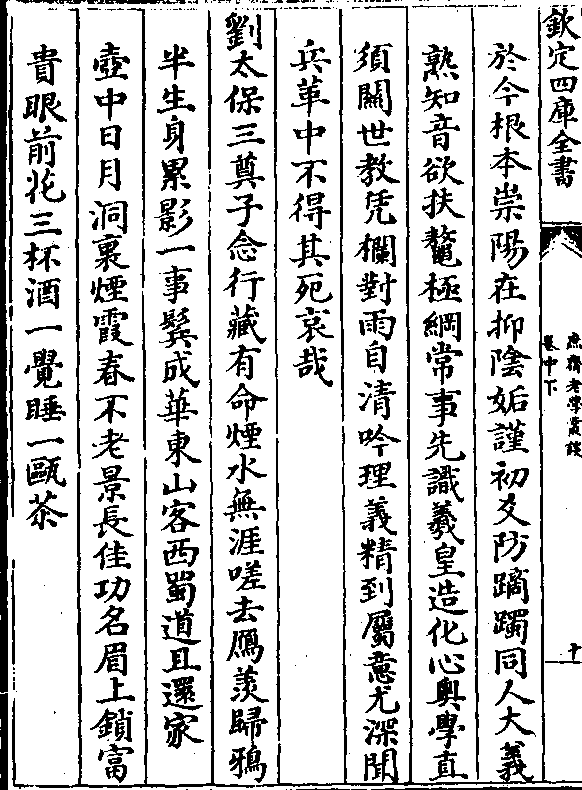 欽定四庫全書
庶齋老學叢談
卷中下
十
於今根本崇陽在抑陰姤謹初爻防蹢躅同人大義
熟知音欲扶鼇極綱常事先識羲皇造化心輿學直
須關世教凭欄對雨自清吟理義精到屬意尤深聞
兵革中不得其死哀哉
劉太保三奠子念行藏有命煙水無涯嗟去鴈羨歸鴉
半生身累影一事鬂成華東山客西蜀道且還家
壺中日月洞裏煙霞春不老景長佳功名眉上鎖富
貴眼前花三杯酒一覺睡一甌茶